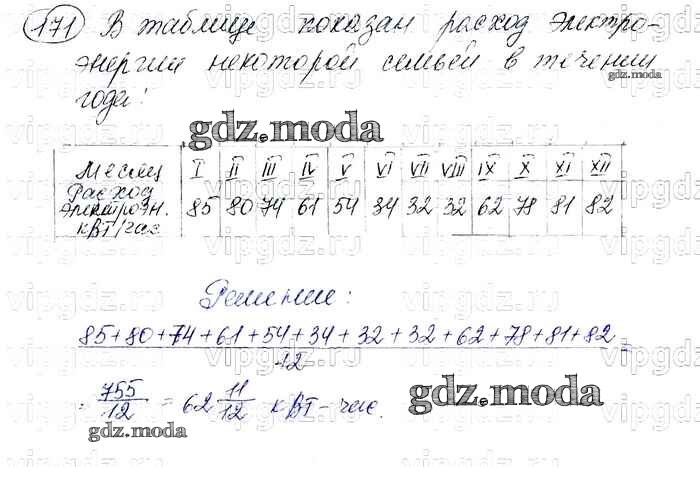 171 В таблице показан расход электро-
энергии некоторой семьёй в течении
года:
gdz.moda
gdz.moda
Месяц I II III IV V VI VII VIII IX X XI XII
Расход
электроэн. 85 80 74 61 54 34 32 32 62 78 81 82
кВт/час
Решение:
85+80+74+61+54+34+32+32+62+78+81+82 =
12
= 755/12 = 62 11/12 кВт-час.
gdz.moda
gdz.moda
vipgdz.ru